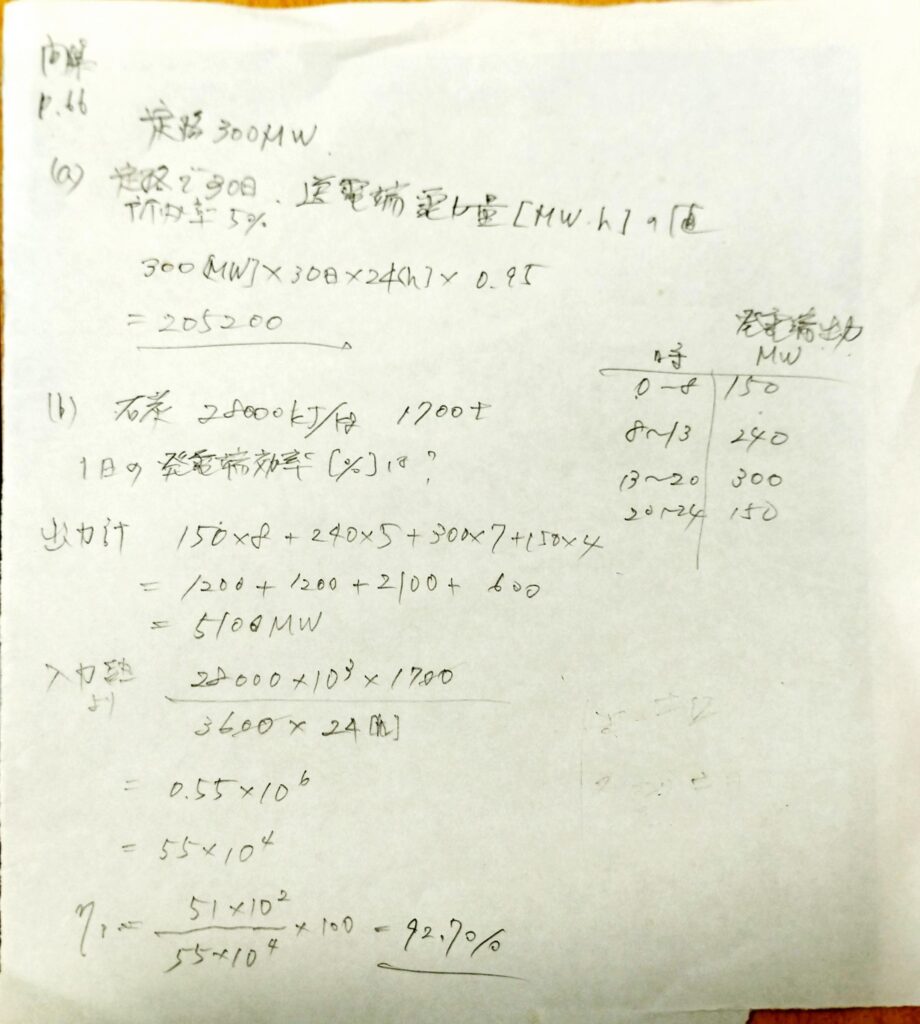 P.66
定格 300MW
(a) 定格で30日
所内率 5%. 送電端電力量[MW・h]の値
300[MW]×30日×24[h]× 0.95
= 205200
発電端出力
時 MW
0~8 150
8~13 240
13~20 300
20~24 150
(b) 石炭 28000kJ/kg 1700t
1日の発電端効率[%]は?
出力計 150×8 + 240×5 + 300×7 + 150×4
= 1200 + 1200 + 2100 + 600
= 5100MW
入力
より
28000 × 10³ × 1700
3600 × 24[h]
= 0.55×10⁶
= 55×10⁴
51×10²
55×10⁴
× 100 = 92.7%